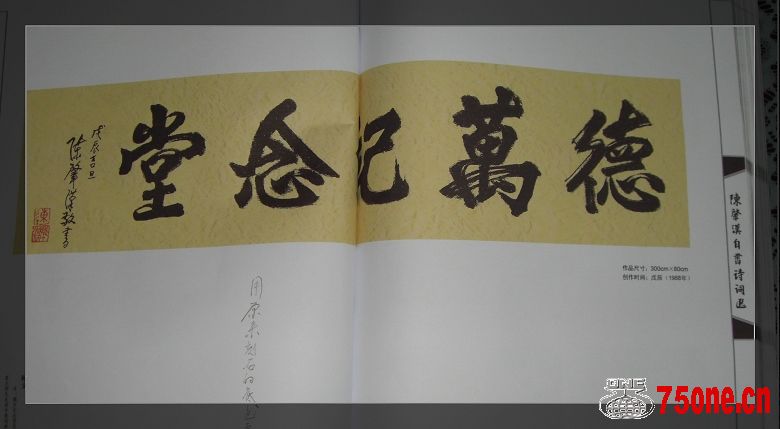 德萬紀念堂
戊辰吉旦
陳肇漢敬書
作品尺寸：300cm×80cm
创作时间：戊辰（1988年）
陳肇漢自書诗词选
用原来刻石的
ONE
75one.cn